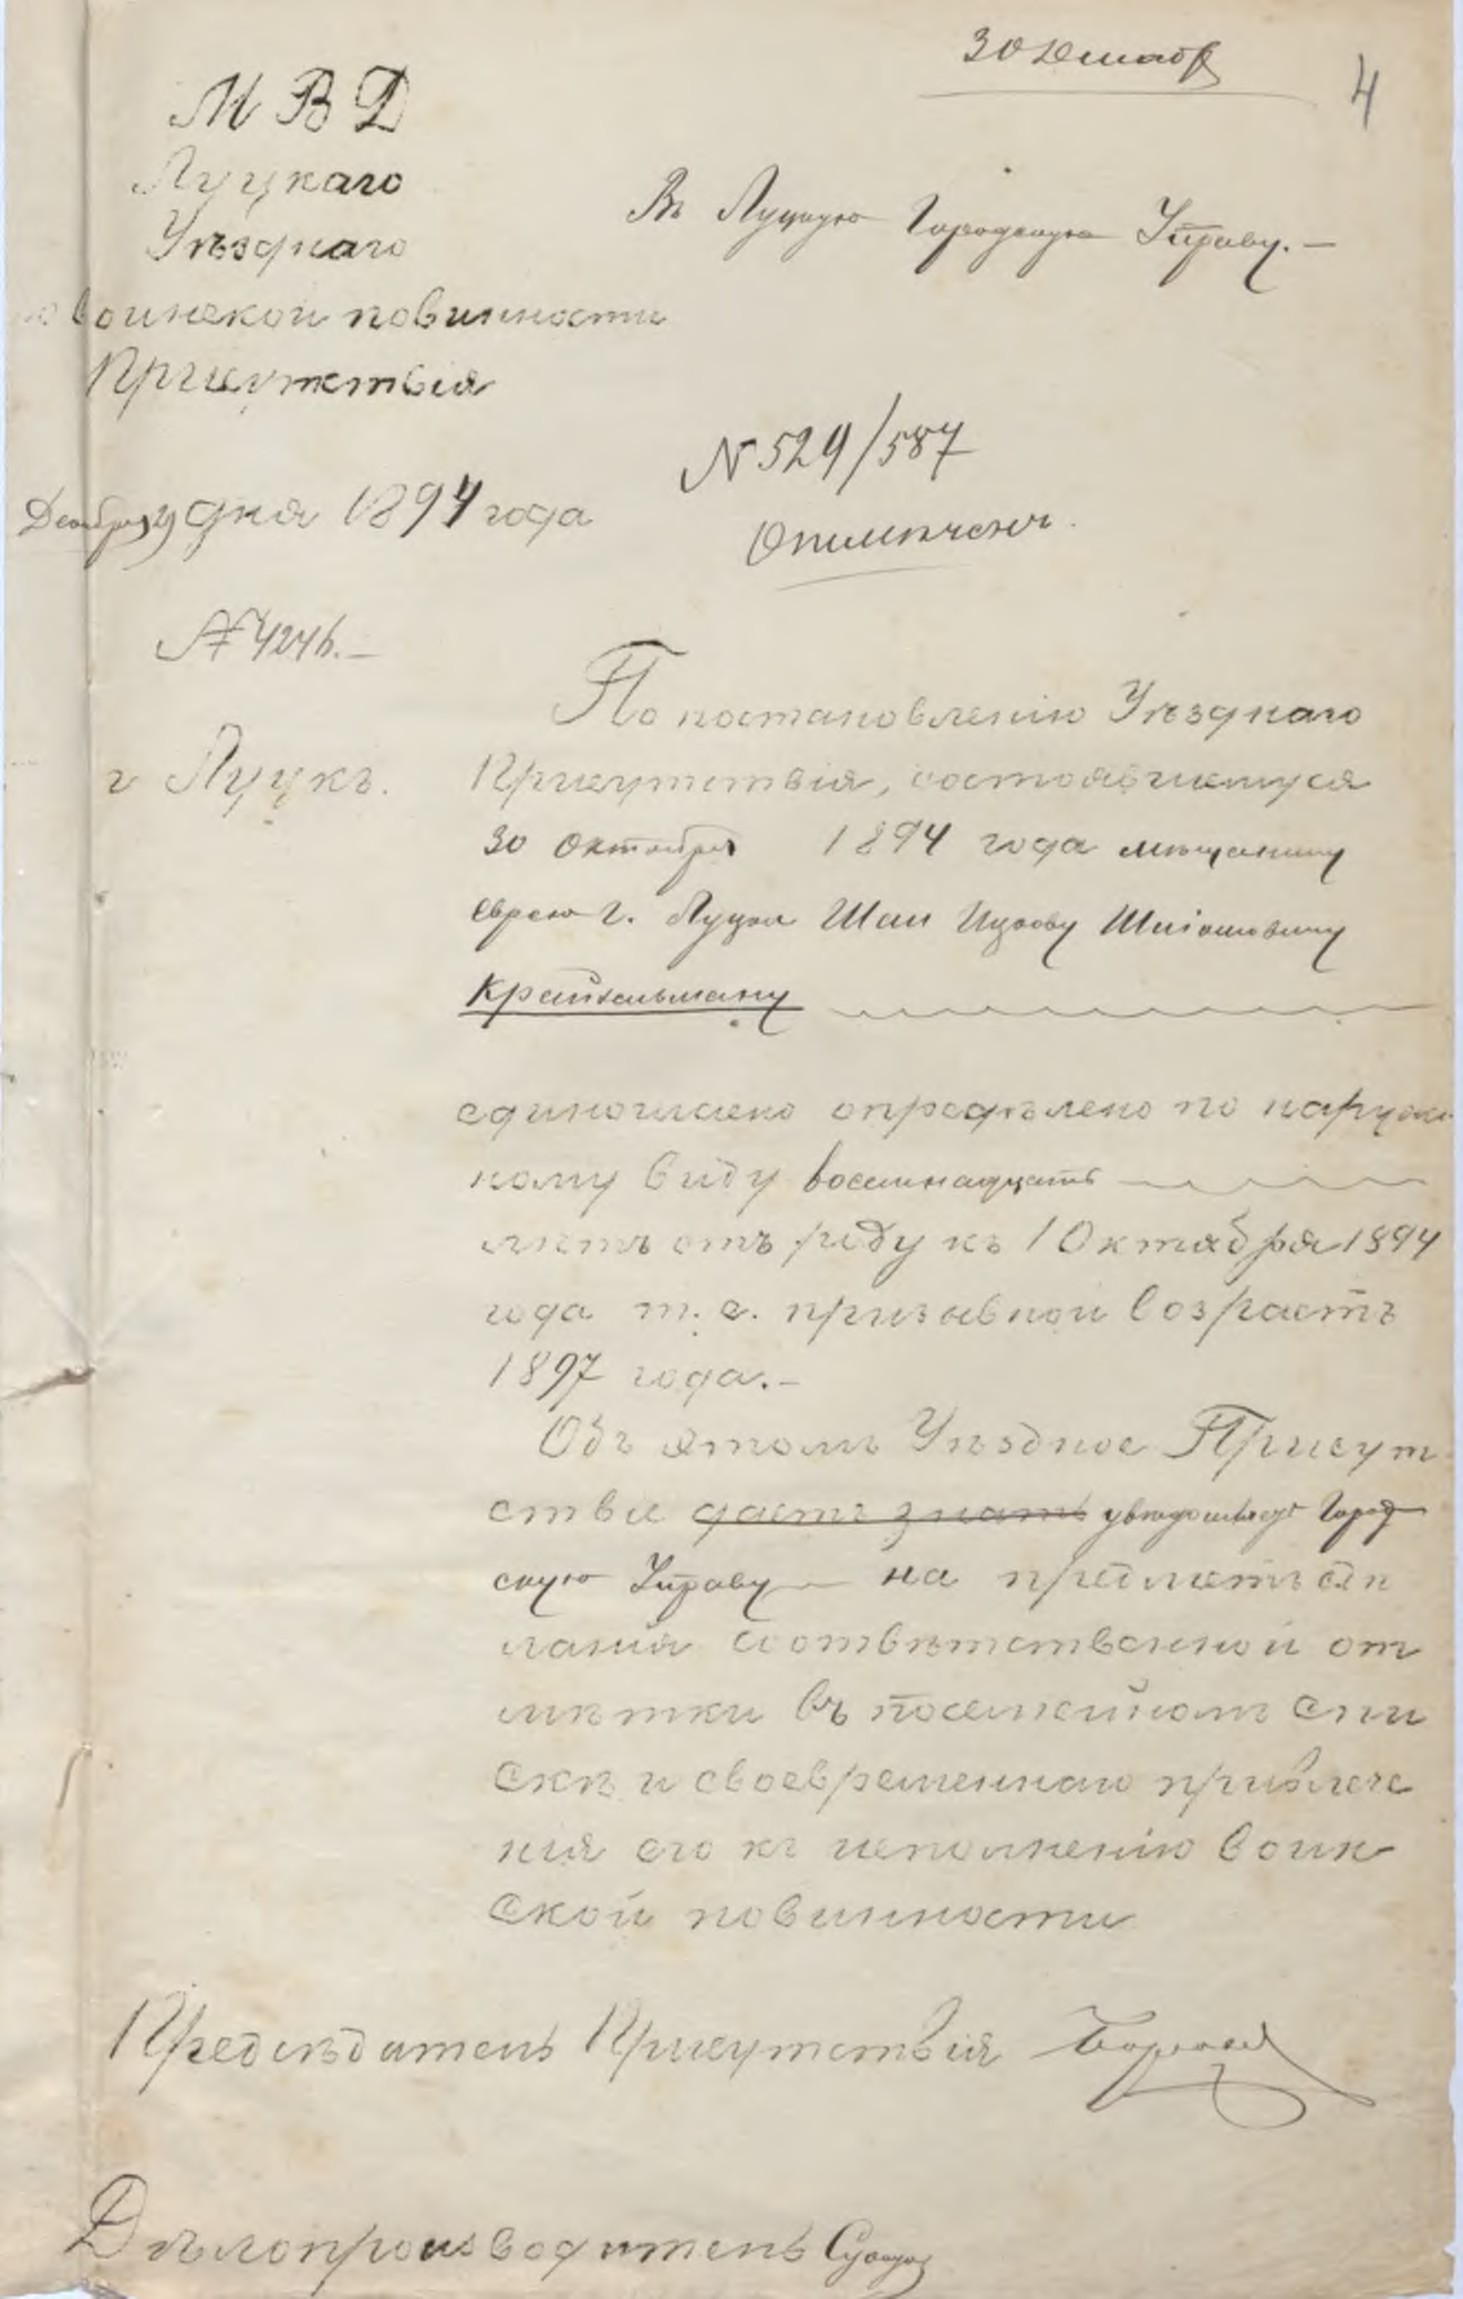 30 Декабр
4
М В Д
Луцкаго
Уѣзднаго
по воинской повинности
Присутствія
Въ Луцкую Городскую Управу.—
N 529/587
Декабря 29 дня 1894 года
Отмѣчено.
№ 4246.—
г Луцкъ.
По постановленію Уѣзднаго
Присутствія, состоявшемуся
30 Октября 1894 года мѣщанину
еврею г. Луцка Шая Ицкову
Крейзельману
единогласно опредѣлено по наруж
ному виду восемнадцать
лѣтъ отъ роду къ 1 Октября 1894
года т. е. призывной возрастъ
1897 года.—
Объ этомъ Уѣздное Присут
ствіе даетъ знать увѣдомляетъ Город
скую Управу — на предметъ сдѣ
ланія соотвѣтственной от
мѣтки въ посемейномъ спи
скѣ и своевременнаго привлече
нія его къ исполненію воин
ской повинности
Предсѣдатель Присутствія
Дѣлопроизводитель